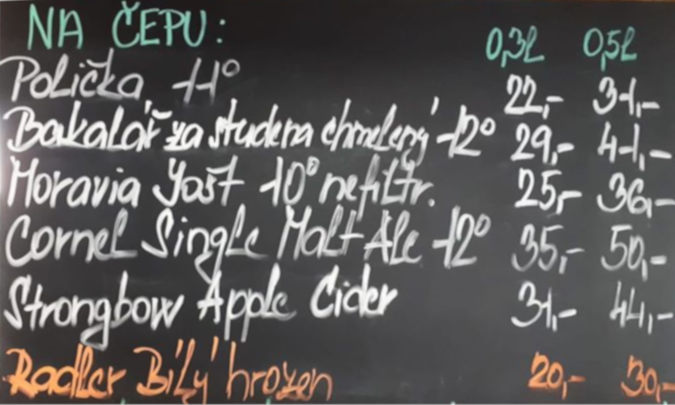 NA ČEPU: 0,3l 0,5l
Polička 11° 22,- 31,-
Bakalář za studena chmelený 12° 29,- 41,-
Moravia Yošt 10° nefiltr. 25,- 36,-
Cornel Single Malt Ale 12° 35,- 50,-
Strongbow Apple Cider 31,- 44,-
Radler Bílý hrozen 20,- 30,-